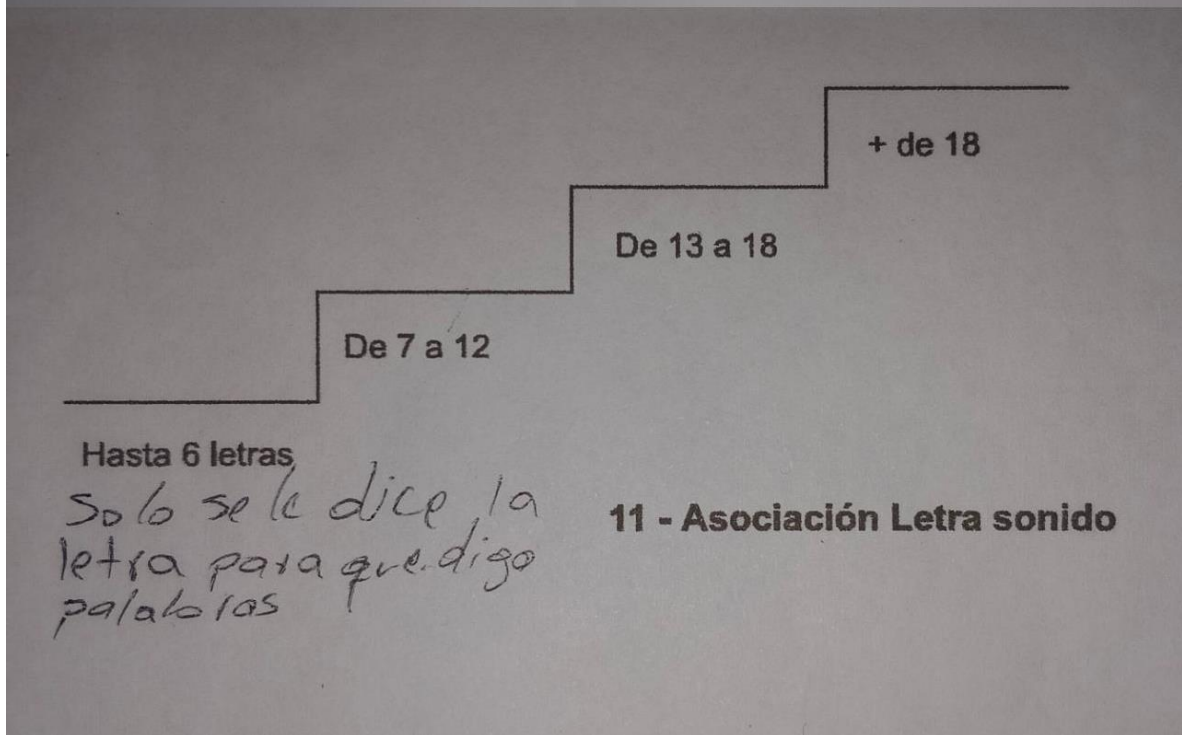 + de 18
De 13 a 18
De 7 a 12
Hasta 6 letras
Solo se le dice la
letra para que digo
palabras
11 - Asociación Letra sonido